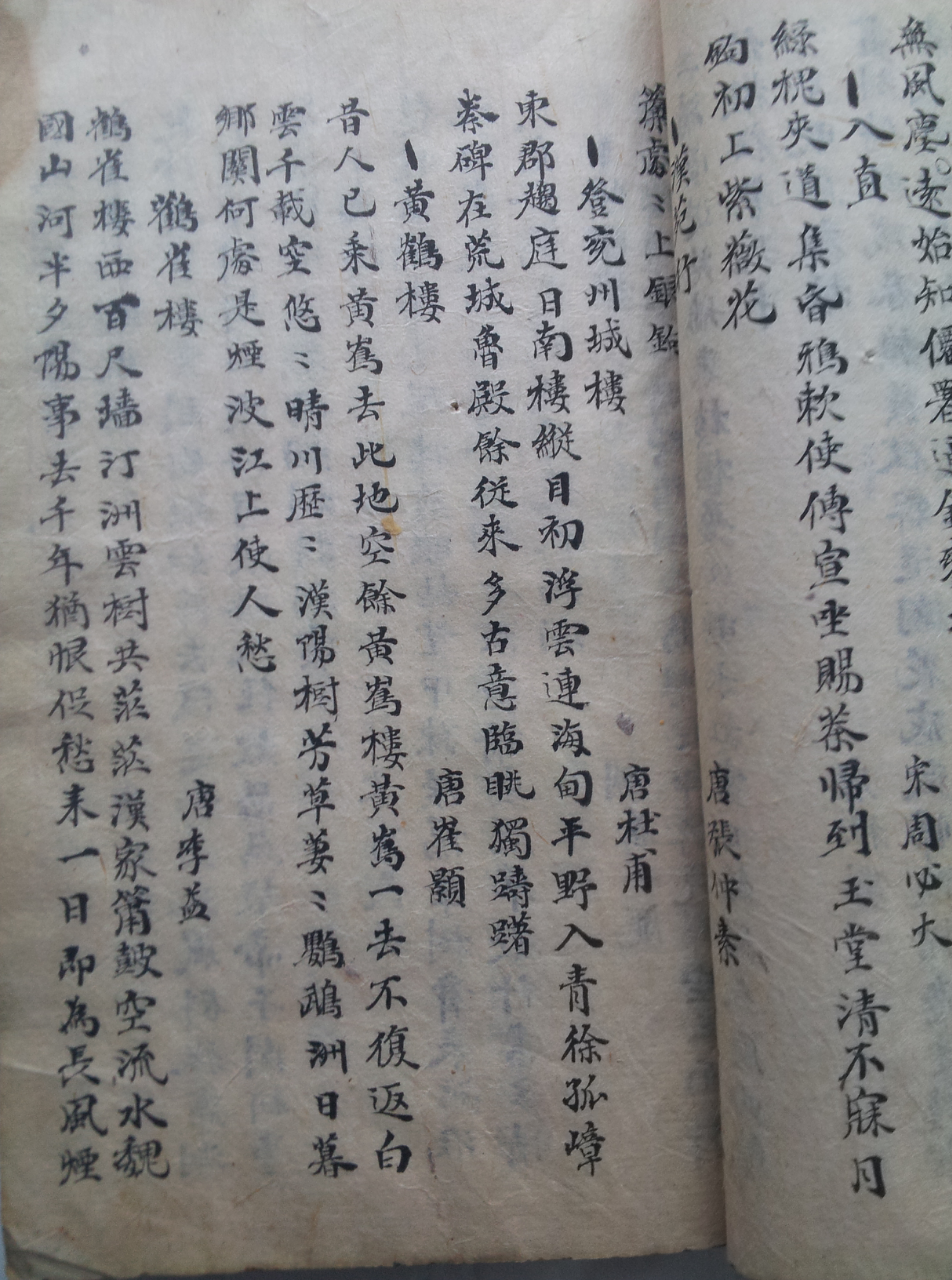 無風塵遠始知僊署
入直
宋周必大
綠槐夾道集昏鴉敕使傳宣坐賜茶歸到玉堂清不寐月
鉤初上紫薇花
漢苑行
唐張仲素
登兗州城樓
唐杜甫
東郡趨庭日南樓縱目初浮雲連海甸平野入青徐孤嶂
秦碑在荒城魯殿餘從來多古意臨眺獨躊躇
黃鶴樓
唐崔顥
昔人已乘黃鶴去此地空餘黃鶴樓黃鶴一去不復返白
雲千載空悠〻晴川歷〻漢陽樹芳草萋〻鸚鵡洲日暮
鄉關何處是煙波江上使人愁
鸛雀樓
唐李益
鸛雀樓西百尺墻汀洲雲樹共茫茫漢家簫鼓空流水魏
國山河半夕陽事去千年猶恨促愁來一日即為長風煙